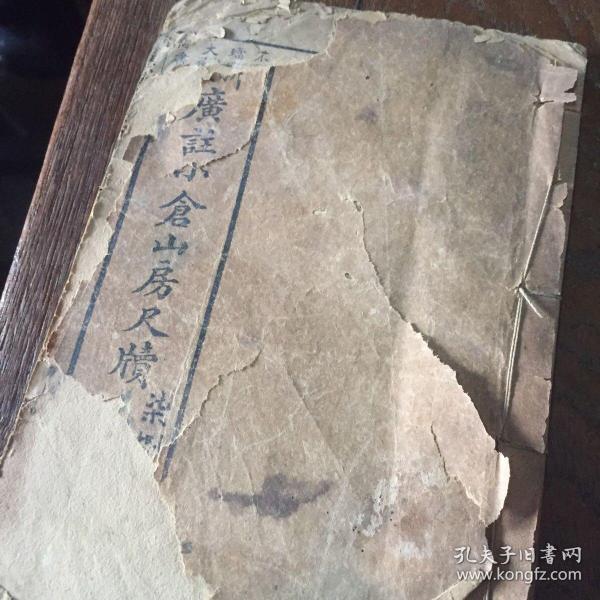 廣註小倉山房尺牘
染
孔夫子旧書网
www.kongfz.com